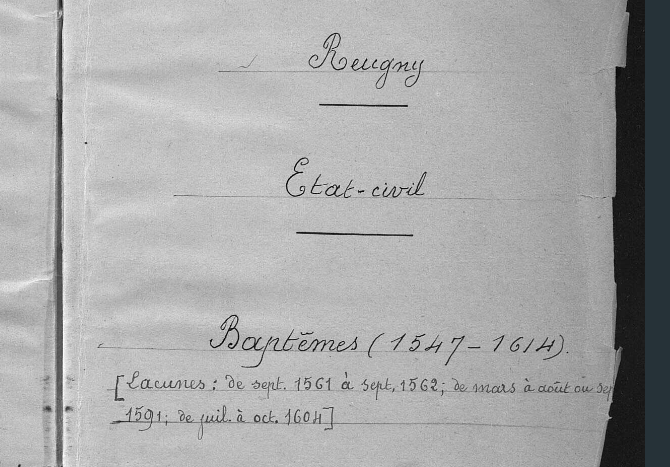 Reugny
Etat-civil
Baptêmes (1547-1614).
[Lacunes: de sept. 1561 à sept. 1562; de mars à août ou
1591; de juil. à oct. 1604]